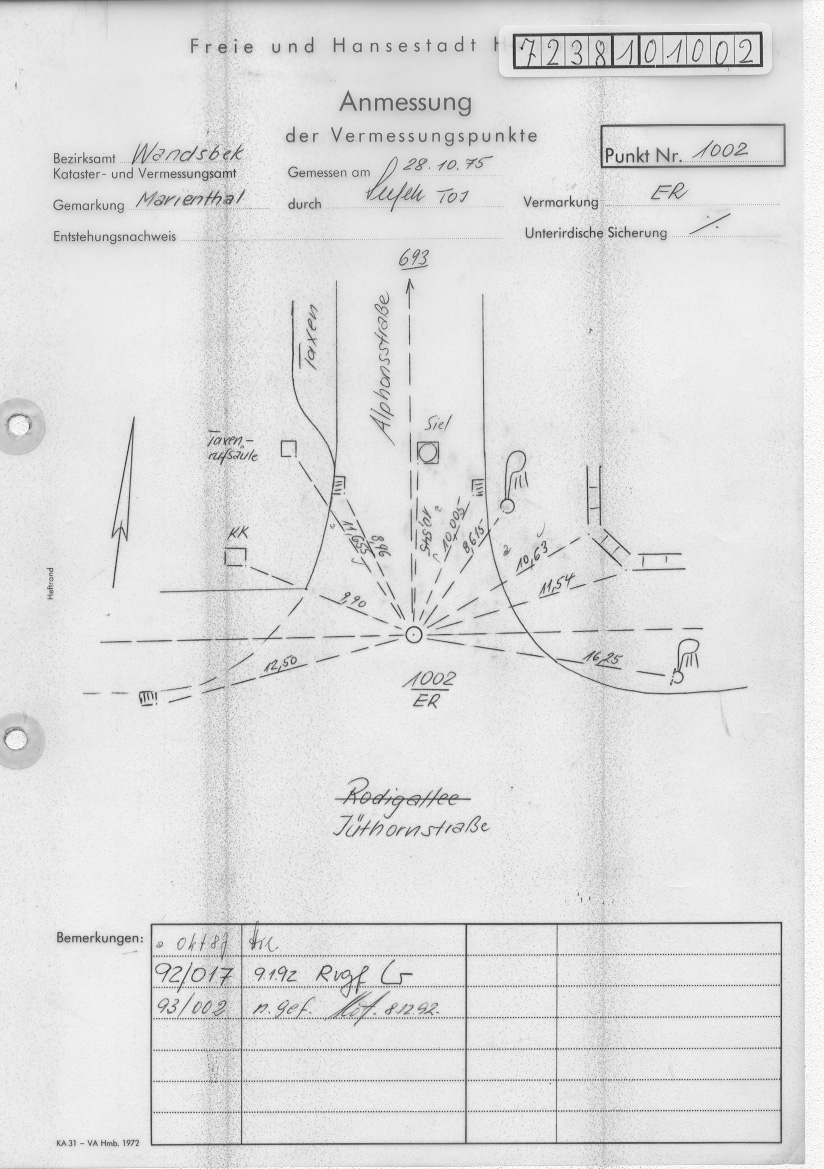 Freie und Hansestadt H
7238101002
Anmessung
der Vermessungspunkte
Bezirksamt Wandsbek
Kataster- und Vermessungsamt
Gemarkung Marienthal
Entstehungsnachweis
Gemessen am 28.10.75
durch TOI
Punkt Nr. 1002
Vermarkung ER
Unterirdische Sicherung ./.
693
Taxen
Alphonsstraße
Siel
Taxen-
rufsäule
KK
11,655
8,96
10,545
10,005
8,615
10,63
11,54
9,90
12,50
16,25
1002
ER
Heftrand
Rodigallee
Jüthornstraße
Bemerkungen:
Okt 87
92/017 9.1.92 Rvgf
93/002 n. gef. 8.12.92.
KA 31 – VA Hmb. 1972